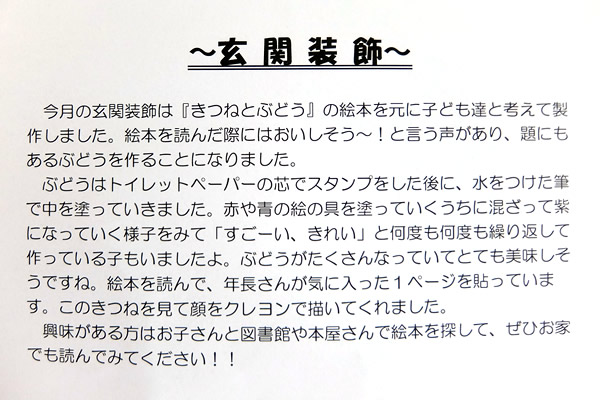 ～玄関装飾～
今月の玄関装飾は『きつねとぶどう』の絵本を元に子ども達と考えて製
作しました。絵本を読んだ際にはおいしそう～！と言う声があり、題にも
あるぶどうを作ることになりました。
ぶどうはトイレットペーパーの芯でスタンプをした後に、水をつけた筆
で中を塗っていきました。赤や青の絵の具を塗っていくうちに混ざって紫
になっていく様子をみて「すごーい、きれい」と何度も何度も繰り返して
作っている子もいましたよ。ぶどうがたくさんなっていてとても美味しそ
うですね。絵本を読んで、年長さんが気に入った１ページを貼っていま
す。このきつねを見て顔をクレヨンで描いてくれました。
興味がある方はお子さんと図書館や本屋さんで絵本を探して、ぜひお家
でも読んでみてください！！